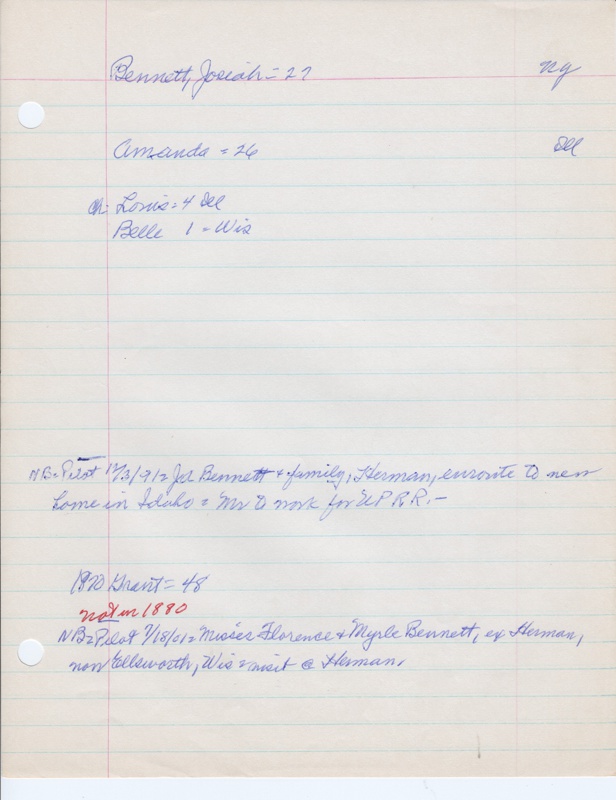 Bennett, Josiah = 27 Ny
Amanda = 26 Ill
Ch: Louis = 4 Ill
Belle 1 = Wis
NB = Pilot 12/3/91 = Jos Bennett & family, Herman, enroute to new
home in Idaho = Mr to work for U P R R. -
1870 Grant = 48
not in 1880
NB = Pilot 7/18/01 = Misses Florence & Myrle Bennett, ex Herman,
now Ellsworth, Wis = visit @ Herman.